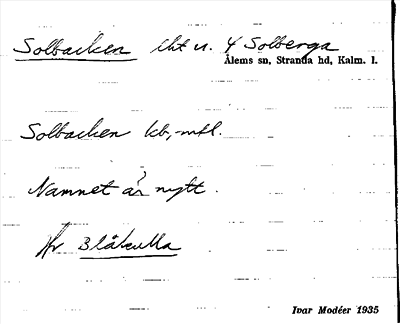 Solbacken lht u. 4 Solberga
Ålems sn, Stranda hd, Kalm. l.
Solbacken kb, mtl.
Namnet är nytt.
Hr Blåkulla
Ivar Modéer 1935